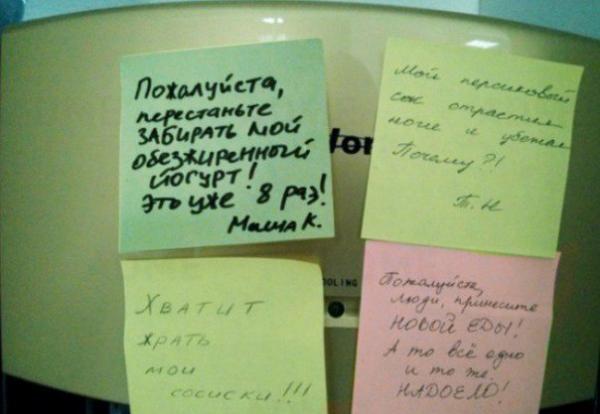 Пожалуйста,
перестаньте
ЗАБИРАТЬ МОЙ
ОБЕЗЖИРЕННЫЙ
ЙОГУРТ!
Это уже 8 раз!
Маша К.
Мой персиковый
сок отрастил
ноги и убежал
Почему?!
Т. Н
OLING
ХВАТИТ
ЖРАТЬ
МОИ
СОСИСКИ!!!
Пожалуйста,
люди, принесите
НОВОЙ ЕДЫ!
А то всё одно
и то же.
НАДОЕЛО!